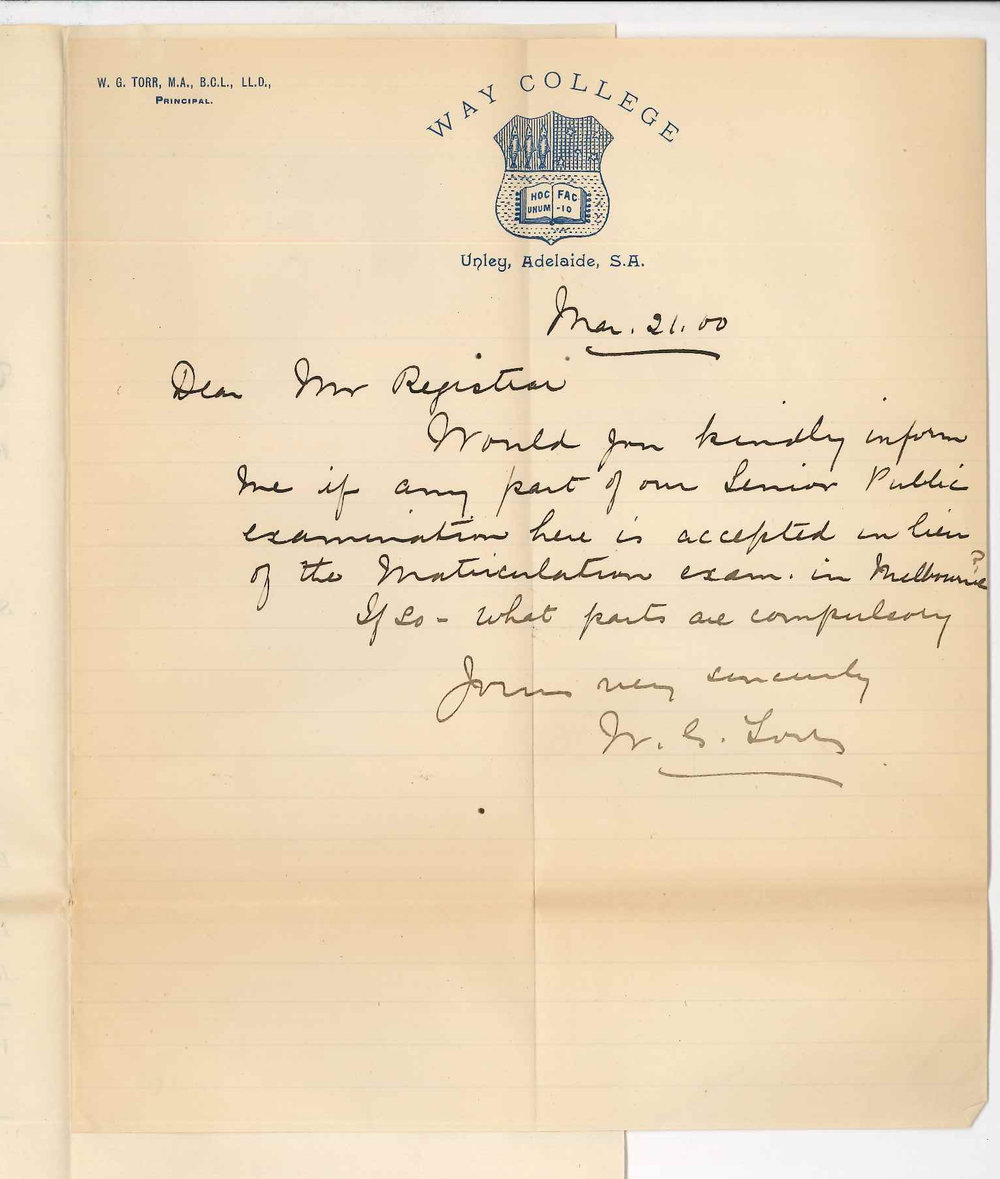 W. G. TORR, M.A., B.C.L., LL.D.,
PRINCIPAL.
WAY COLLEGE
HOC FAC
UNUM -IO
Unley, Adelaide, S.A.
Mar. 21. 00
Dear Mr Registrar
Would you kindly inform
me if any part of our Senior Public
examination here is accepted in lieu
of the Matriculation exam. in Melbourne?
If so - what parts are compulsory
Yours very sincerely
W. G. Torr